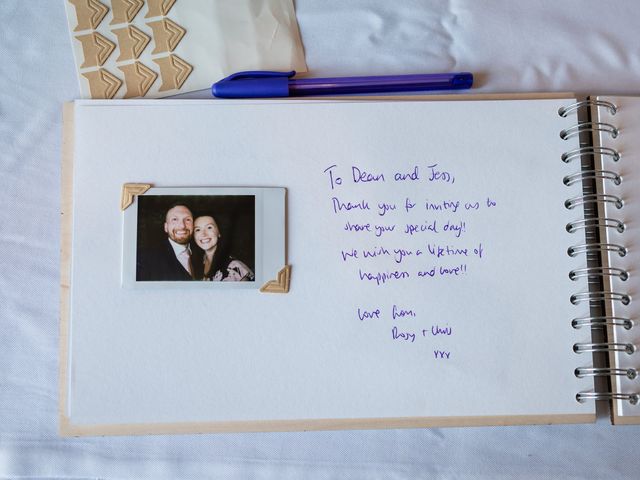 To Dean and Jess,
Thank you for inviting us to
share your special day!
We wish you a lifetime of
happiness and love!!
Love from,
Rosy + Chris
xxx